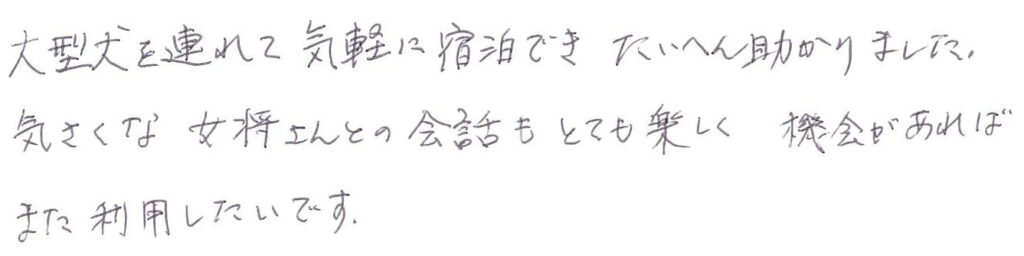 大型犬を連れて 気軽に宿泊でき たいへん助かりました。
気さくな 女将さんとの会話も とても楽しく 機会があれば
また利用したいです。